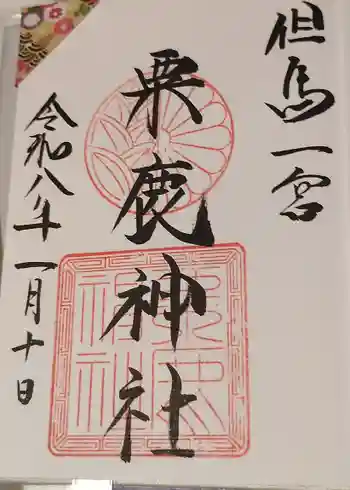 但馬一宮
粟鹿神社
令和八年一月十日